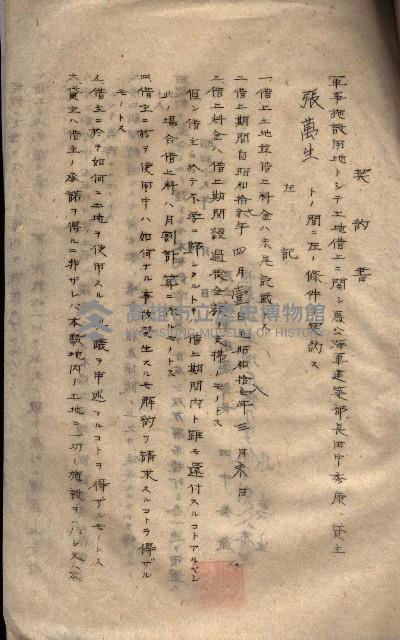 契約書
軍事施設用地トシテ土地借上ニ関シ馬公海軍建築部長田中秀康、貸主
張萬生 トノ間ニ左ノ條件契約ス
左記
一、借上土地並借上料金ハ末尾記載ノ
二、借上期間自昭和拾 年四月壹日至昭和拾 年三月末日
三、借上料金ハ借上期間経過後全額支拂フモノトス
但シ借主ニ於テ不要ニ歸シタルトキハ借上期間内ト雖モ還付スルコトアルベシ
此ノ場合借上料ハ月割計算 トス
四、借主ニ於テ使用中ハ如何ナル事故発生スルモ解約ヲ請求スルコトヲ得ザル
モノトス
五、借主ニ於テ如何ニ土地ヲ使用スルモ 議ヲ申述ブルコトヲ得ザルモノトス
六、貸主ハ借主ノ承諾ヲ得ルニ非ザレバ本敷地内ノ土地ニ一切ノ施設ヲ為シ又ハ
高雄市立歷史博物館
KAOHSIUNG MUSEUM OF HISTORY